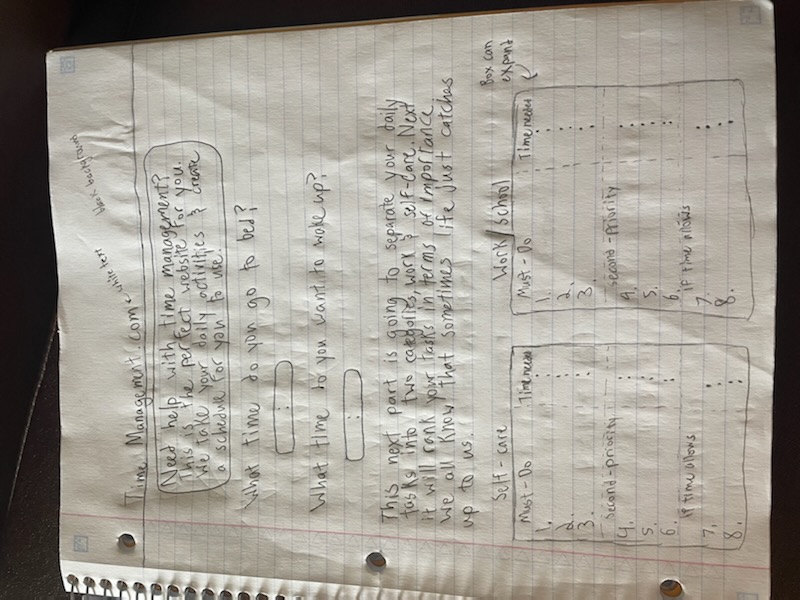 black background
Time Management.com ← white text
Need help with time management?
This is the perfect website for you.
We take your daily activities & create
a schedule for you to use!
What time do you go to bed?
:
What time do you want to wake up?
:
This next part is going to separate your daily
tasks into two categories, work & self-care. Next
it will rank your tasks in terms of importance.
We all know that sometimes life just catches
up to us.
Self-care
Must-Do Time needed
1. :
2. :
3. :
Second-priority
4. :
5. :
6. :
if time allows
7. :
8. :
Work/School
Must-Do Time needed
1. :
2. :
3. :
Second-Priority
4. :
5. :
6. :
if time allows
7. :
8. :
Box can
expand